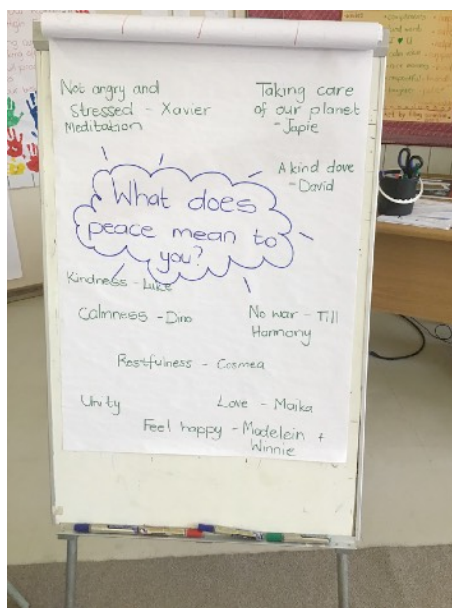 Not angry and
Stressed - Xavier
Meditation
Taking care
of our planet
- Japie
A kind dove
- David
What does
peace mean to
you?
Kindness - Luke
Calmness - Dino
No war - Till
Harmony
Restfulness - Cosmea
Unity
Love - Maika
Feel happy - Madelein +
Winnie